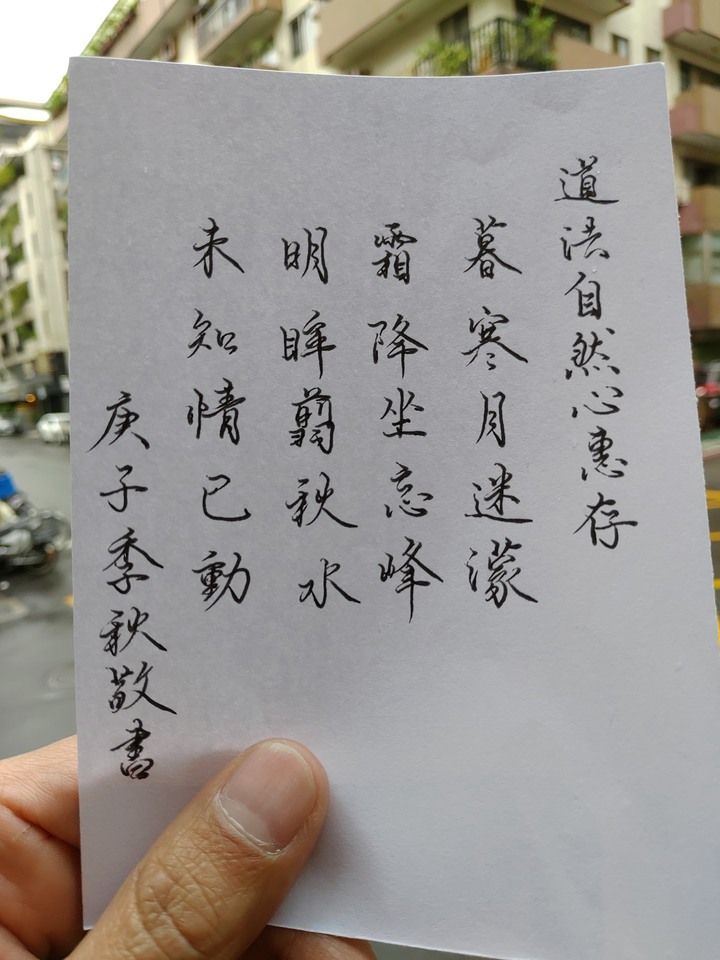 道法自然心惠存
暮寒月迷濛
霜降坐忘峰
明眸翦秋水
未知情已動
庚子季秋敬書